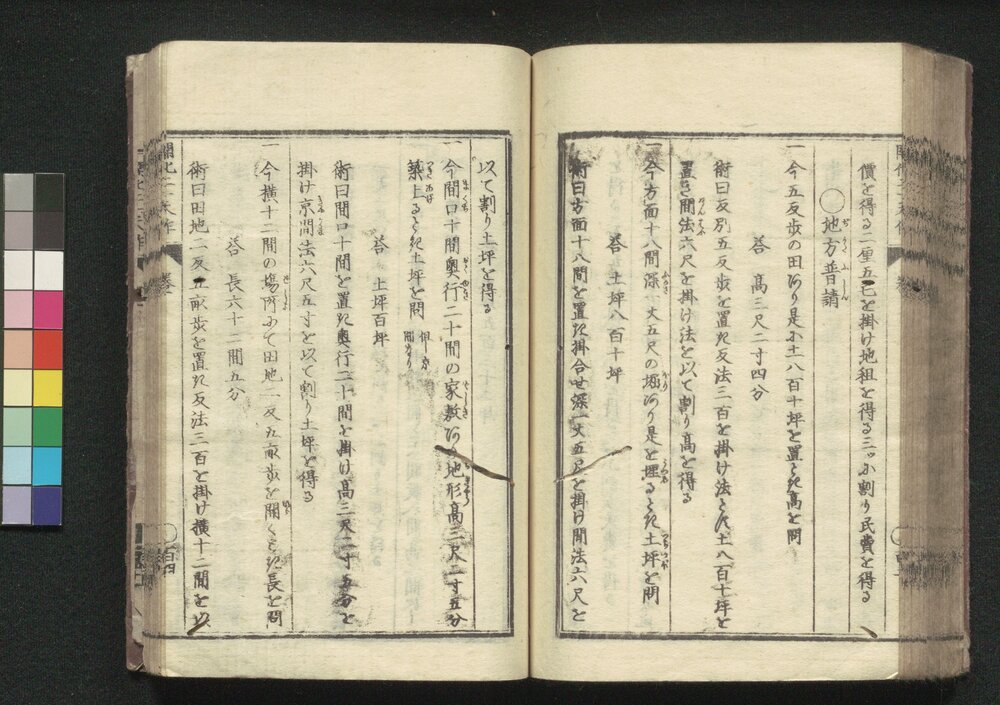 價を得る二厘五毛を掛け地租を得る三ッに割り民費を得る
〇地方普請
一今五反歩の田あり是に土八百十坪を置とき高を問
答 高三尺二寸四分
術曰反別五反歩を置き反法三百を掛け法とし土八百十坪を
置き間法六尺を掛け法を以て割り高を得る
一今方面十八間深一丈五尺の堀あり是を埋るとき土坪を問
答 土坪八百十坪
術曰方面十八間を置き掛合せ深一丈五尺を掛け間法六尺を
以て割り土坪を得る
一今間口十間奥行二十間の家敷あり地形高三尺二寸五分
築上るとき土坪を問
答 土坪百坪
術曰間口十間を置き奥行二十間を掛け高三尺二寸五分を
掛け京間法六尺五寸を以て割り土坪を得る
一今横十二間の場所にて田地二反五畝歩を開くとき長を問
答 長六十二間五分
術曰田地二反五畝歩を置き反法三百を掛け横十二間を以
百四